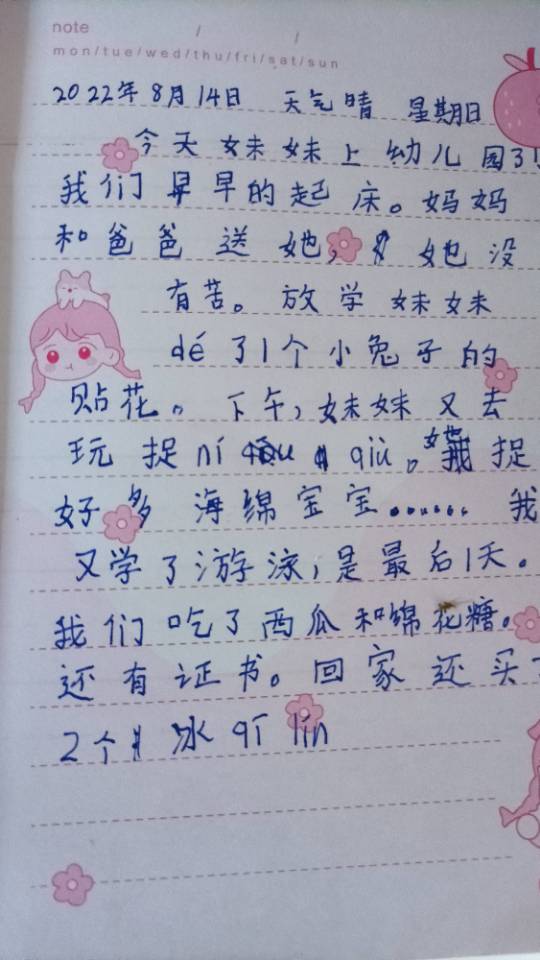 note / /
mon/tue/wed/thu/fri/sat/sun
2022年8月14日 天气晴 星期日
今天妹妹上幼儿园了!
我们早早的起床。妈妈
和爸爸送她,她没
有苦。放学妹妹
dé了1个小兔子的
贴花。下午,妹妹又去
玩捉ní qiū。捉
好多海绵宝宝……我
又学了游泳,是最后1天。
我们吃了西瓜和绵花糖。
还有证书。回家还买了
2个冰qī lín